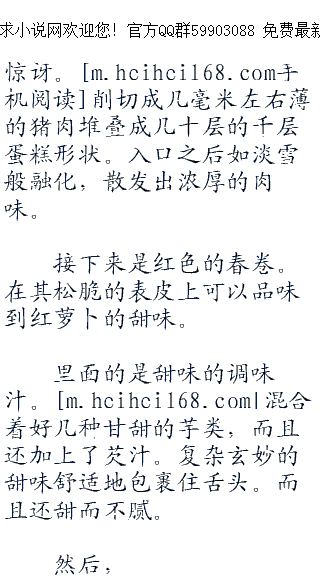 求小说网欢迎您! 官方QQ群59903088 免费最新
惊讶。[m.hcihcil68.com手
机阅读]削切成几毫米左右薄
的猪肉堆叠成几十层的千层
蛋糕形状。入口之后如淡雪
般融化，散发出浓厚的肉
味。
接下来是红色的春卷。
在其松脆的表皮上可以品味
到红萝卜的甜味。
里面的是甜味的调味
汁。[m.hcihcil68.com|混合
着好几种甘甜的芋类，而且
还加上了芡汁。复杂玄妙的
甜味舒适地包裹住舌头。而
且还甜而不腻。
然后，